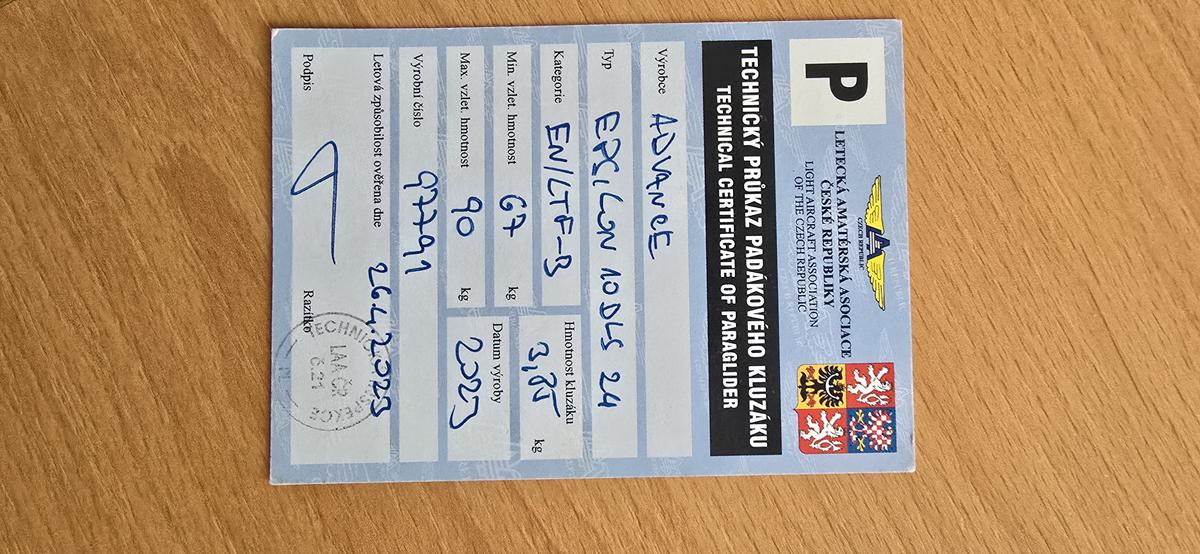 P
CZECH REPUBLIC
LETECKÁ AMATÉRSKÁ ASOCIACE
ČESKÉ REPUBLIKY
LIGHT AIRCRAFT ASSOCIATION
OF THE CZECH REPUBLIC
TECHNICKÝ PRŮKAZ PADÁKOVÉHO KLUZÁKU
TECHNICAL CERTIFICATE OF PARAGLIDER
Výrobce ADVANCE
Typ EPSILON 10DLS 24
Kategorie EN/LTF-B
Hmotnost kluzáku 3,85 kg
Min. vzlet. hmotnost 67 kg
Max. vzlet. hmotnost 90 kg
Datum výroby 2023
Výrobní číslo 97791
Letová způsobilost ověřena dne 26.4.2023
Podpis
Razítko
LAA ČR
č.21